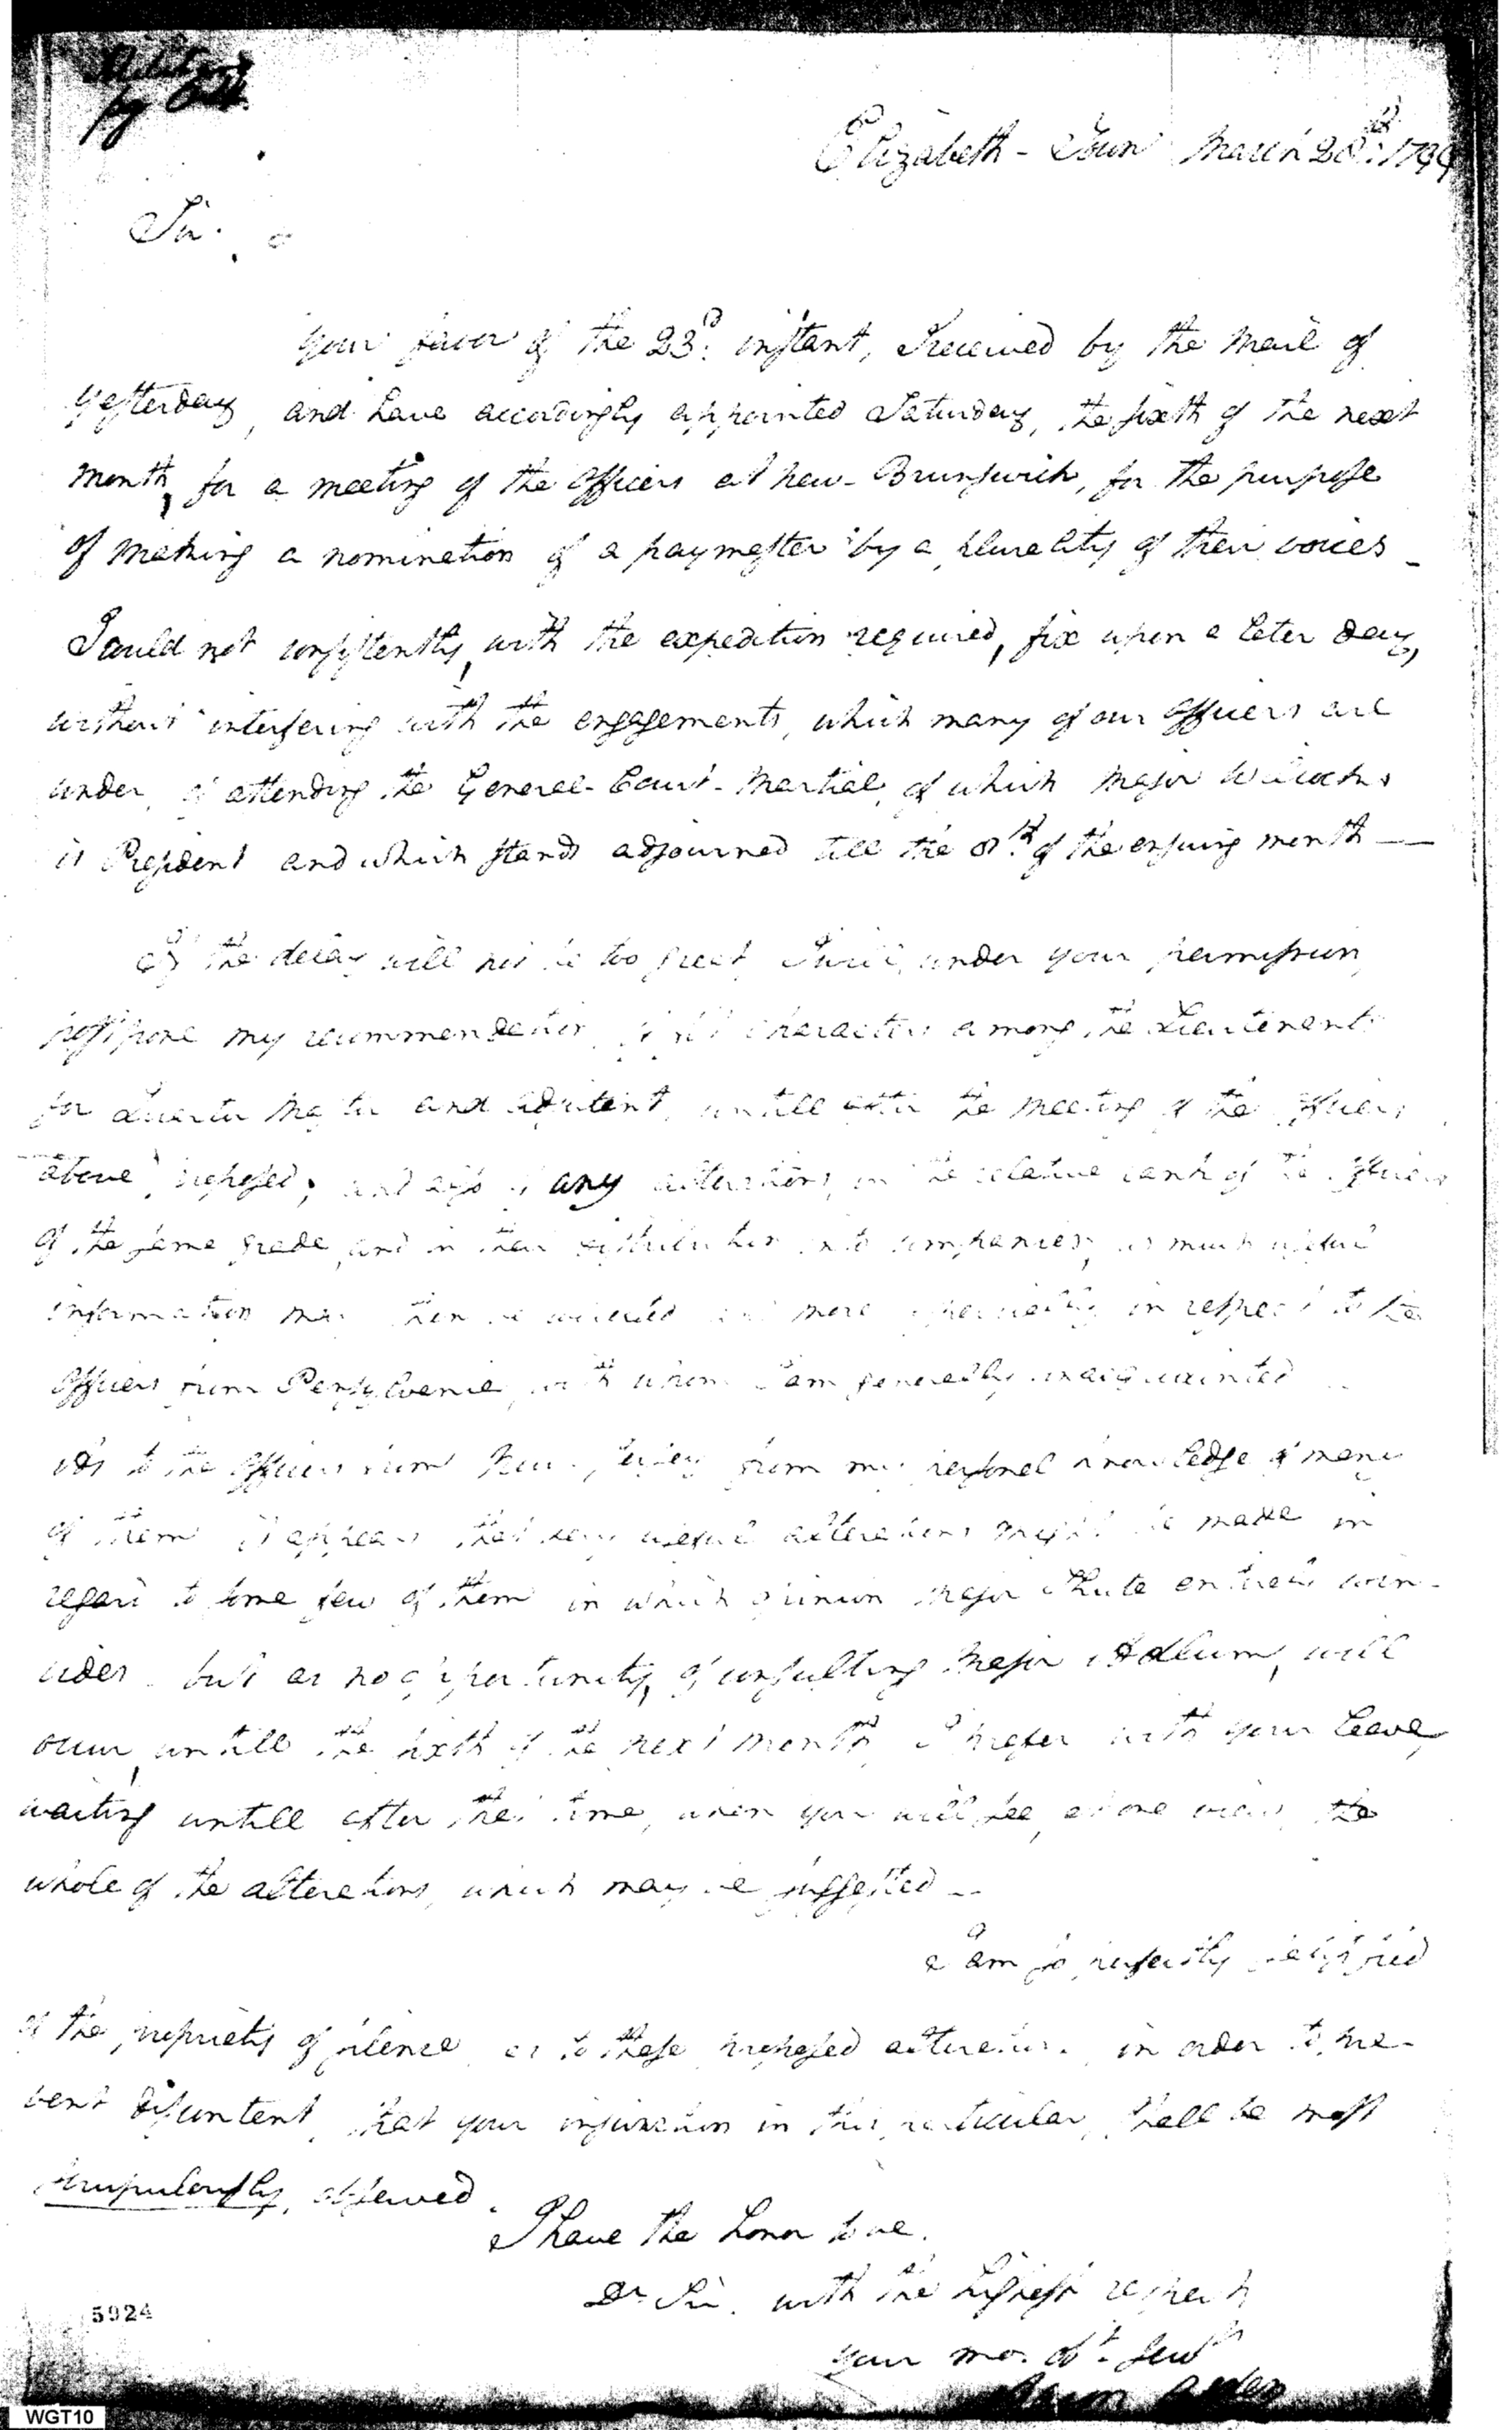 Elizabeth-Town March 28th. 1799
Sir.
Your favor of the 23d. instant, I received by the mail of
yesterday, and have accordingly appointed Saturday, the sixth of the next
month, for a meeting of the Officers at New-Brunswick, for the purpose
of making a nomination of a paymaster by a plurality of their voices _
I could not consistently, with the expedition required, fix upon a later day,
without interfering with the engagements, which many of our Officers are
under, of attending the General-Court-Martial, of which Major Willcocks
is President and which stands adjourned till the 8th. of the ensuing month —
If the delay will not be too great, I will, under your permission,
postpone my recommendation of characters among the Lieutenants
for Quarter Master and adjutant, untill after the meeting of the Officers,
above proposed; and also of any alterations, in the relative rank of the Officers
of the same grade, and in their distribution into companies, as much useful
information may then be collected and more especially in respect to the
Officers from Pensylvania, with whom I am generally unacquainted _
As to the Officers from New-Jersey from my personal knowledge of many
of them it appears that very useful alterations might be made in
regard to some few of them in which opinion Major Shute entirely coin-
cides. but as no opportunity, of consulting Major Adlum, will
occur, untill the sixth of the next month, I prefer with your leave,
waiting untill after that time, when you will see, at one view, the
whole of the alterations, which may be suggested _
I am so perfectly satisfied
of the propriety of silence as to these proposed alterations in order to pre-
vent discontent, that your injunction in this particular, shall be most
scrupulously, observed.
I have the honor to be.
Dr. Sir. with the highest respect
your mo. obt. Servt
Aaron Ogden
5924
WGT10